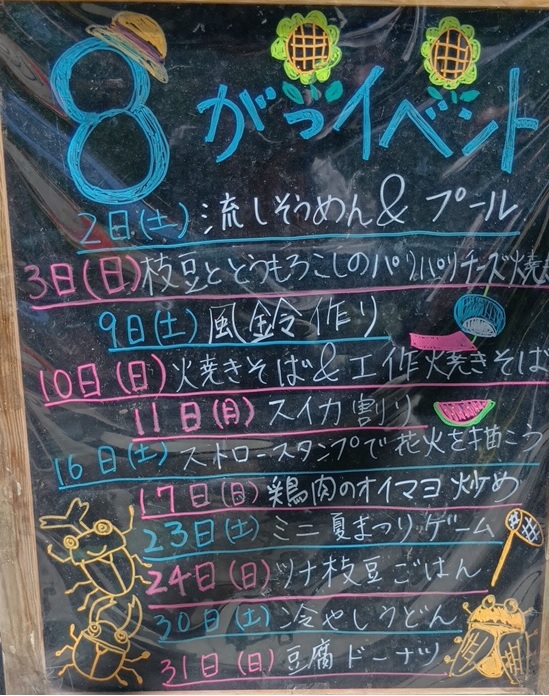 8がつイベント
2日(土) 流しそうめん&プール
3日(日) 枝豆ととうもろこしのパリパリチーズ焼き
9日(土) 風鈴作り
10日(日) 焼きそば&工作焼きそば
11日(月) スイカ割り
16日(土) ストロースタンプで花火を描こう
17日(日) 鶏肉のオイマヨ炒め
23日(土) ミニ夏まつりゲーム
24日(日) ツナ枝豆ごはん
30日(土) 冷やしうどん
31日(日) 豆腐ドーナツ